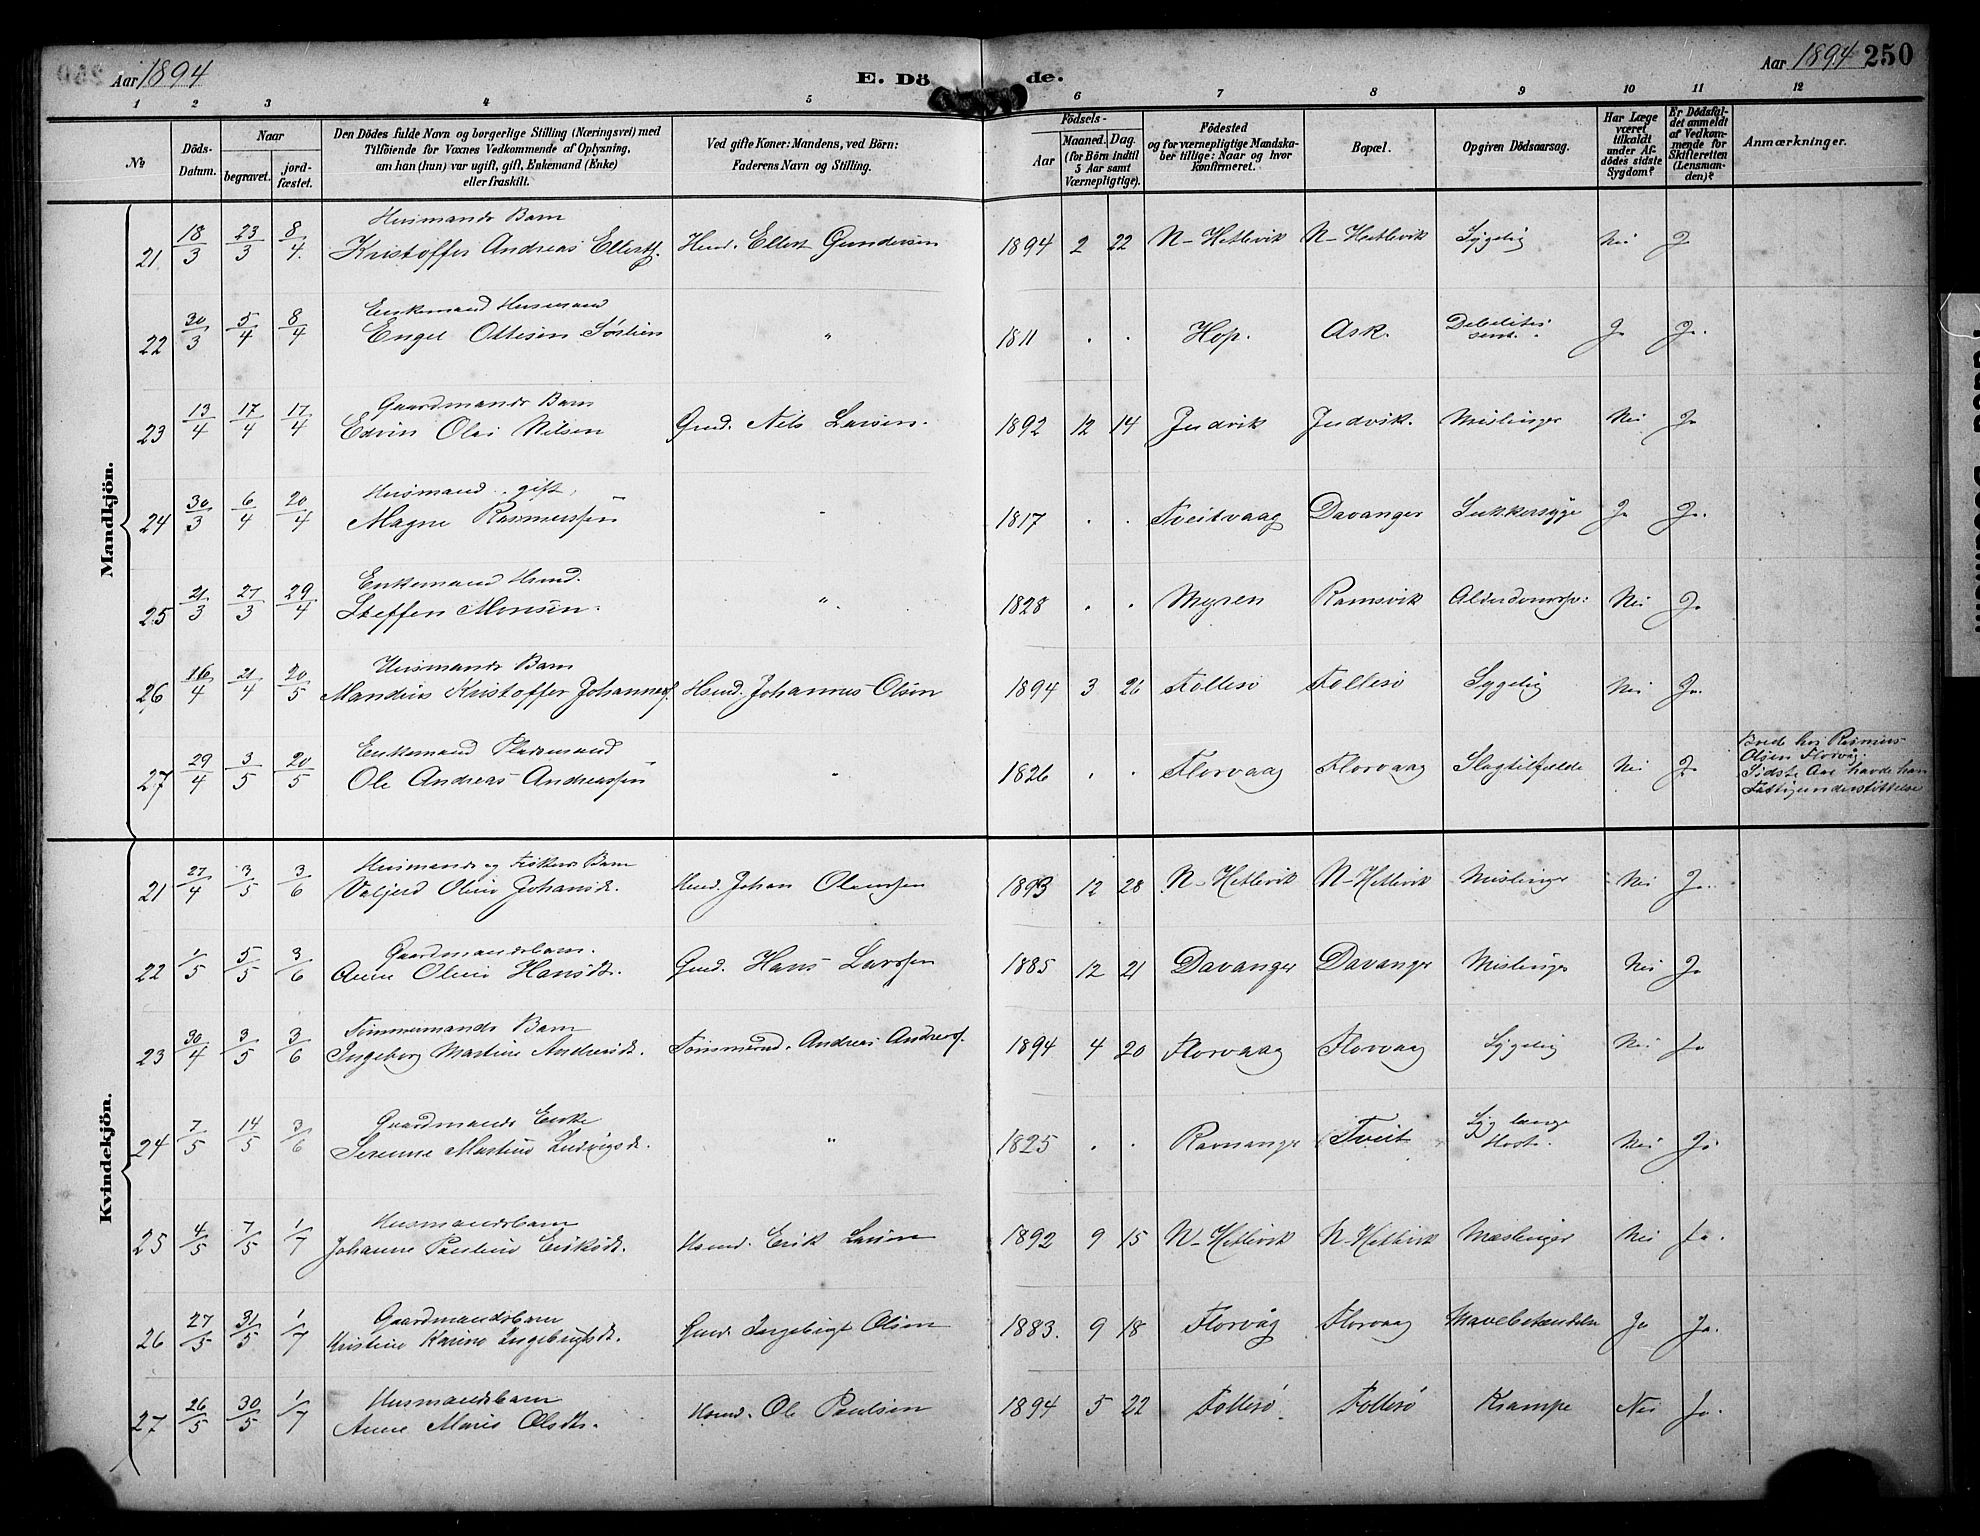 Aar 1894
E. Dö de.
Aar 1894 250
1 2 3 4 5 6 7 8 9 10 11 12
No
Döds-Datum.
Naar
begravet.
jord-fæstet.
Den Dödes fulde Navn og borgerlige Stilling (Næringsvei) med
Tilföiende for Voxnes Vedkommende af Oplysning,
om han (hun) var ugift, gift, Enkemand (Enke)
eller fraskilt.
Ved gifte Koner: Mandens, ved Börn:
Faderens Navn og Stilling.
Födsels-
Aar
Maaned. Dag.
(for Börn indtil
5 Aar samt
Værnepligtige).
Födested
og for værnepligtige Mandska-
ber tillige: Naar og hvor
konfirmeret.
Bopæl.
Opgiven Dödsaarsag.
Har Læge
været
tilkaldt
under Af-
dödes sidste
Sygdom?
Er Dödsfal-
det anmeldt
af Vedkom-
mende for
Skifteretten
(Lensman-
den)?
Anmærkninger.
Mandkjön.
Husmands Barn
21 18/3 23/3 8/4 Kristoffer Andreas Ellertsf. Hmd. Ellert Gundersen 1894 2 22 N-Hetlevik N-Hetlevik Sygelig Nei J
Enkemand Husmand
22 30/3 5/4 8/4 Engel Ottesen " 1811 . . Hop. Ask. J Ja.
Gaardmands Barn
23 13/4 17/4 17/4 Edvin Olai Nilsen Gmd. Nils Larsen. 1892 12 14 Judvik Judvik. Mislinger Nei Ja
Husmand. gift,
24 30/3 6/4 20/4 Magne Rasmussen " 1817 . . Tveitvaag Davanger Sukkersyge Ja Ja.
Enkemand Hmd.
25 21/3 27/3 29/4 Steffen Monsen. " 1828 . . Myren Ramsvik Nei Ja
Husmands Barn
26 16/4 21/4 20/5 Mandius Kristoffer Johannesf. Hmd. Johannes Olsen 1894 3 26 Follesö Follesö Sygelig Nei Ja.
Enkemand Pladsmand
27 29/4 3/5 20/5 Ole Andreas Andreassen " 1826 . . Florvaag Florvaag Slagtilfælde Nei Ja
Boede hos Rasmus
Olsen Florvåg
Sidste Aar havde han
Fattigunderstöttelse
Kvindekjön.
Husmands og Fiskers Barn
21 27/4 3/5 3/6 Valjerd Oline Johansd. Hmd. Johan Olaussen 1893 12 28 N-Hetlevik N-Hetlevik Mislinger Nei Ja.
Gaardmandsbarn.
22 1/5 5/5 3/6 Anne Oline Hansd. Gmd. Hans Larssen 1885 12 21 Davanger Davanger Mislinger Nei Ja
Tömmermands Barn
23 30/4 3/5 3/6 Ingeborg Martine Andreasd. Tömmermd. Andreas Andreasf. 1894 4 20 Florvaag Florvaag Sygelig Nei Ja
Gaardmands Enke
24 7/5 14/5 3/6 Serenne Martine Ludvigsd. " 1825 . . Ravnanger Tveit Syg længe Hoste. Nei Ja
Husmandsbarn
25 4/5 7/5 1/7 Johanne Pauline Eriksd. Hsmd. Erik Larsen 1892 9 15 N-Hetlevik N-Hetlevik Mæslinger Nei Ja.
Gaardmandsbarn
26 27/5 31/5 1/7 Kristine Karine Ingebrigtsd. Gmd. Ingebrigt Olsen 1883. 9 18 Florvåg Florvaag Mavebetændelse Ja Ja.
Husmandsbarn
27 26/5 30/5 1/7 Anne Marie Olsdtr. Hsmd. Ole Paulsen 1894 5 22 Follesö Follesö Krampe Nei Ja.